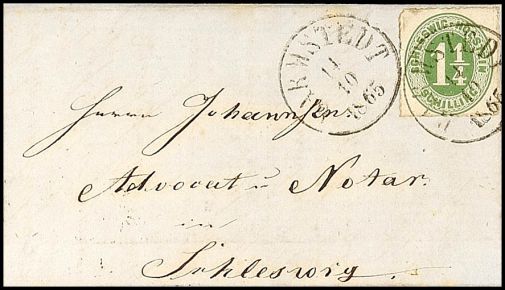 BARMSTEDT
11
10
1865
SCHLESWIG-HOLSTEIN
1¼
SCHILLING
Herrn Johannsen
Advocat u Notar.
in
Schleswig